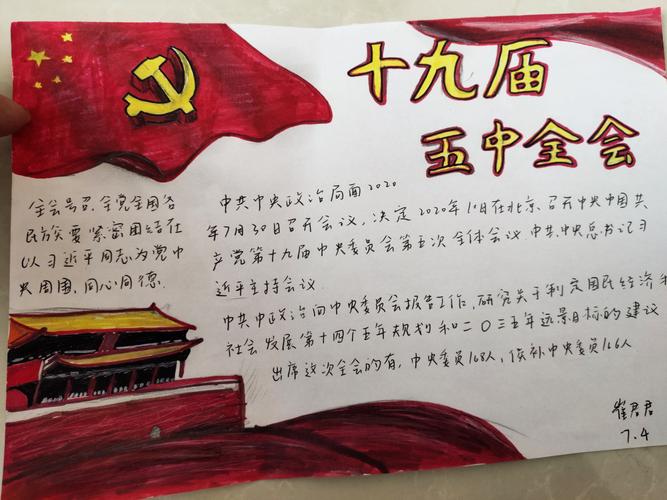 十九届
五中全会
全会号召,全党全国各
民族要紧密团结在
以习近平同志为党中
央周围,同心同德.
中共中央政治局面2020
年7月30日召开会议,决定2020年10月在北京、召开中央中国共
产党第十九届中央委员会第五次全体会议.中共中央总书记习
近平主持会议.
中共中政治向中央委员会报告工作,研究关于制定国民经济和
社会发展第十四个五年规划和二〇三五年远景目标的建议
出席这次全会的有,中央委员168人,候补中央委员166人
崔君君
7.4